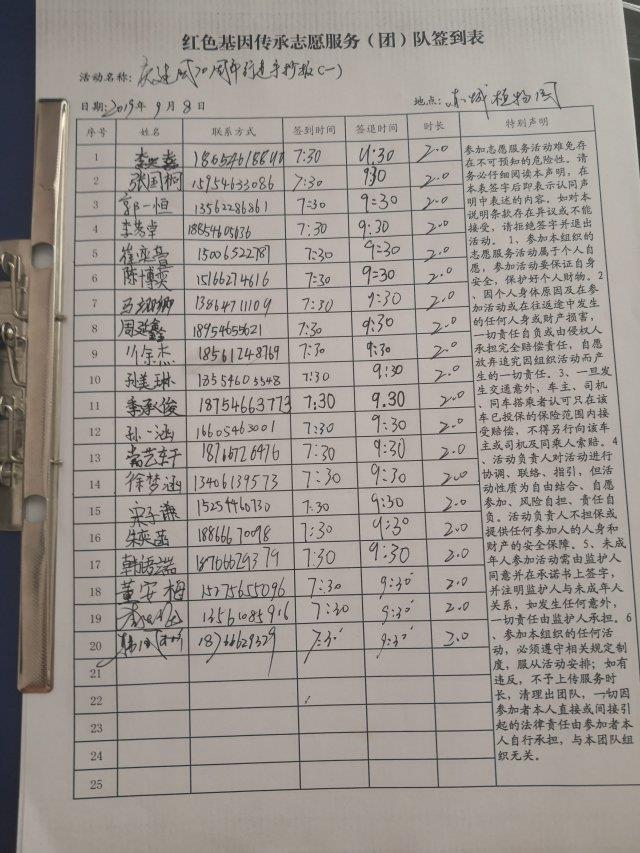 红色基因传承志愿服务（团）队签到表
活动名称：庆建国70周年行走手抄报(一)
日期：2019年 9月 8日 地点：东城植物园
序号 姓名 联系方式 签到时间 签退时间 时长 特别声明
1 7:30 9:30 2.0
2 张国桐 15954633086 7:30 9:30 2.0
3 郭一恒 13562286861 7:30 9:30 2.0
4 18854605636 7:30 9:30 2.0
5 崔奕萱 15006522787 7:30 9:30 2.0
6 陈博奕 15166274616 7:30 9:30 2.0
7 13864711109 7:30 9:30 2.0
8 18954655621 7:30 9:30 2.0
9 18561248769 7:30 9:30 2.0
10 孙美琳 7:30 9:30 2.0
11 季承俊 18754663773 7:30 9.30 2.0
12 孙一涵 16605463001 7:30 9:30 2.0
13 7:30 9:30 2.0
14 徐梦涵 13406139573 7:30 9:30 2.0
15 宋子谦 15254460730 7:30 9:30 2.0
16 朱奕菡 18866670098 7:30 9:30 2.0
17 7:30 9:30 2.0
18 董安梅 15275655096 7:30 9:30 2.0
19 7:30 9:30 2.0
20 7:30 9:30 2.0
21
22
23
24
25
参加志愿服务活动难免存
在不可预知的危险性。请
务必仔细阅读本声明，在
本表签字后即表示认同声
明中表述的内容。如对本
说明条款存在异议或不能
接受，请拒绝签字并退出
活动。 1、参加本组织的
志愿服务活动属于个人自
愿，参加活动要保证自身
安全，保护好个人财物。2
、因个人身体原因及在参
加活动或在往返途中发生
的任何人身或财产损害，
一切责任自负或由侵权人
承担完全赔偿责任，自愿
放弃追究因组织活动而产
生的一切责任。3、一旦发
生交通意外，车主、司机
、同车搭乘者认可只在该
车已投保的保险范围内接
受赔偿，不得另行向该车
主或司机及同乘人索赔。4
、活动负责人对活动进行
协调、联络、指引，但活
动性质为自由结合、自愿
参加、风险自担、责任自
负。活动负责人不担保或
提供任何参加人的人身和
财产的安全保障。5、未成
年人参加活动需由监护人
同意并在承诺书上签字，
并注明监护人与未成年人
关系，如发生任何意外，
一切责任由监护人承担。6
、参加本组织的任何活
动，必须遵守相关规定制
度，服从活动安排；如有
违反，不予上传服务时
长，清理出团队，一切因
参加者本人直接或间接引
起的法律责任由参加者本
人自行承担，与本团队组
织无关。